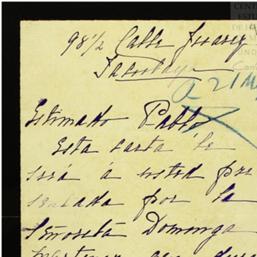 98½ Calle Juarez
Tacubaya
2 21 M
Estimado Pablo
Esta carta le
será á usted pre
sentada por la
Señorita Dominga